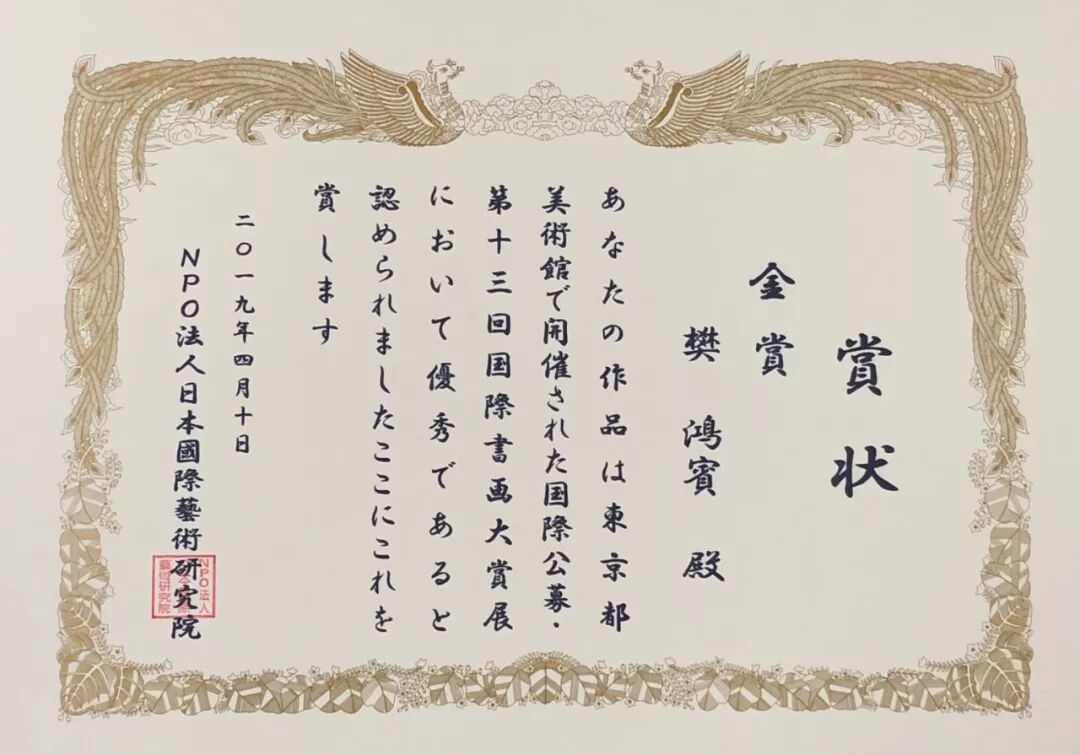 賞状
金賞
樊 鴻賓 殿
あなたの作品は東京都
美術館で開催された国際公募・
第十三回国際書画大賞展
において優秀であると
認められましたここにこれを
賞します
二〇一九年四月十日
NPO法人日本國際藝術研究院
NPO法人
藝術研究院